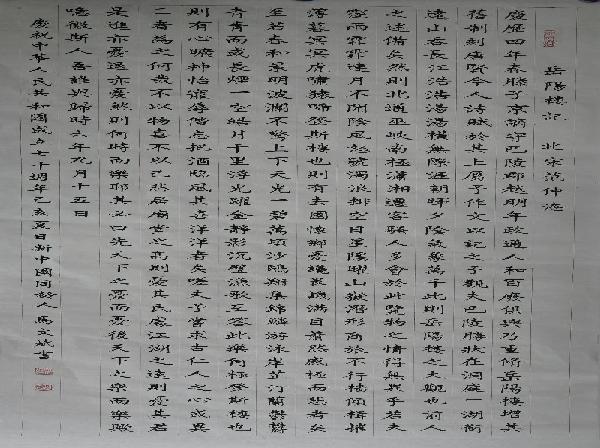 岳陽樓記 北宋范仲淹
慶曆四年春滕子京謫守巴陵郡越明年政通人和百廢俱興乃重修岳陽樓增其
舊制刻唐賢今人詩賦於其上屬予作文以記之予觀夫巴陵勝狀在洞庭一湖銜
遠山吞長江浩浩湯湯橫無際涯朝暉夕陰氣象萬千此則岳陽樓之大觀也前人
之述備矣然則北通巫峽南極瀟湘遷客騷人多會於此覽物之情得無異乎若夫
霪雨霏霏連月不開陰風怒號濁浪排空日星隱曜山嶽潛形商旅不行檣傾楫摧
薄暮冥冥虎嘯猿啼登斯樓也則有去國懷鄉憂讒畏譏滿目蕭然感極而悲者矣
至若春和景明波瀾不驚上下天光一碧萬頃沙鷗翔集錦鱗游泳岸芷汀蘭鬱鬱
青青而或長煙一空皓月千里浮光躍金靜影沉璧漁歌互答此樂何極登斯樓也
則有心曠神怡寵辱偕忘把酒臨風其喜洋洋者矣嗟夫予嘗求古仁人之心或異
二者之為何哉不以物喜不以己悲居廟堂之高則憂其民處江湖之遠則憂其君
是進亦憂退亦憂然則何時而樂耶其必曰先天下之憂而憂後天下之樂而樂歟
噫微斯人吾誰與歸時六年九月十五日
慶祝中華人民共和國成立七十週年己亥夏日新中國同齡人馬文斌書